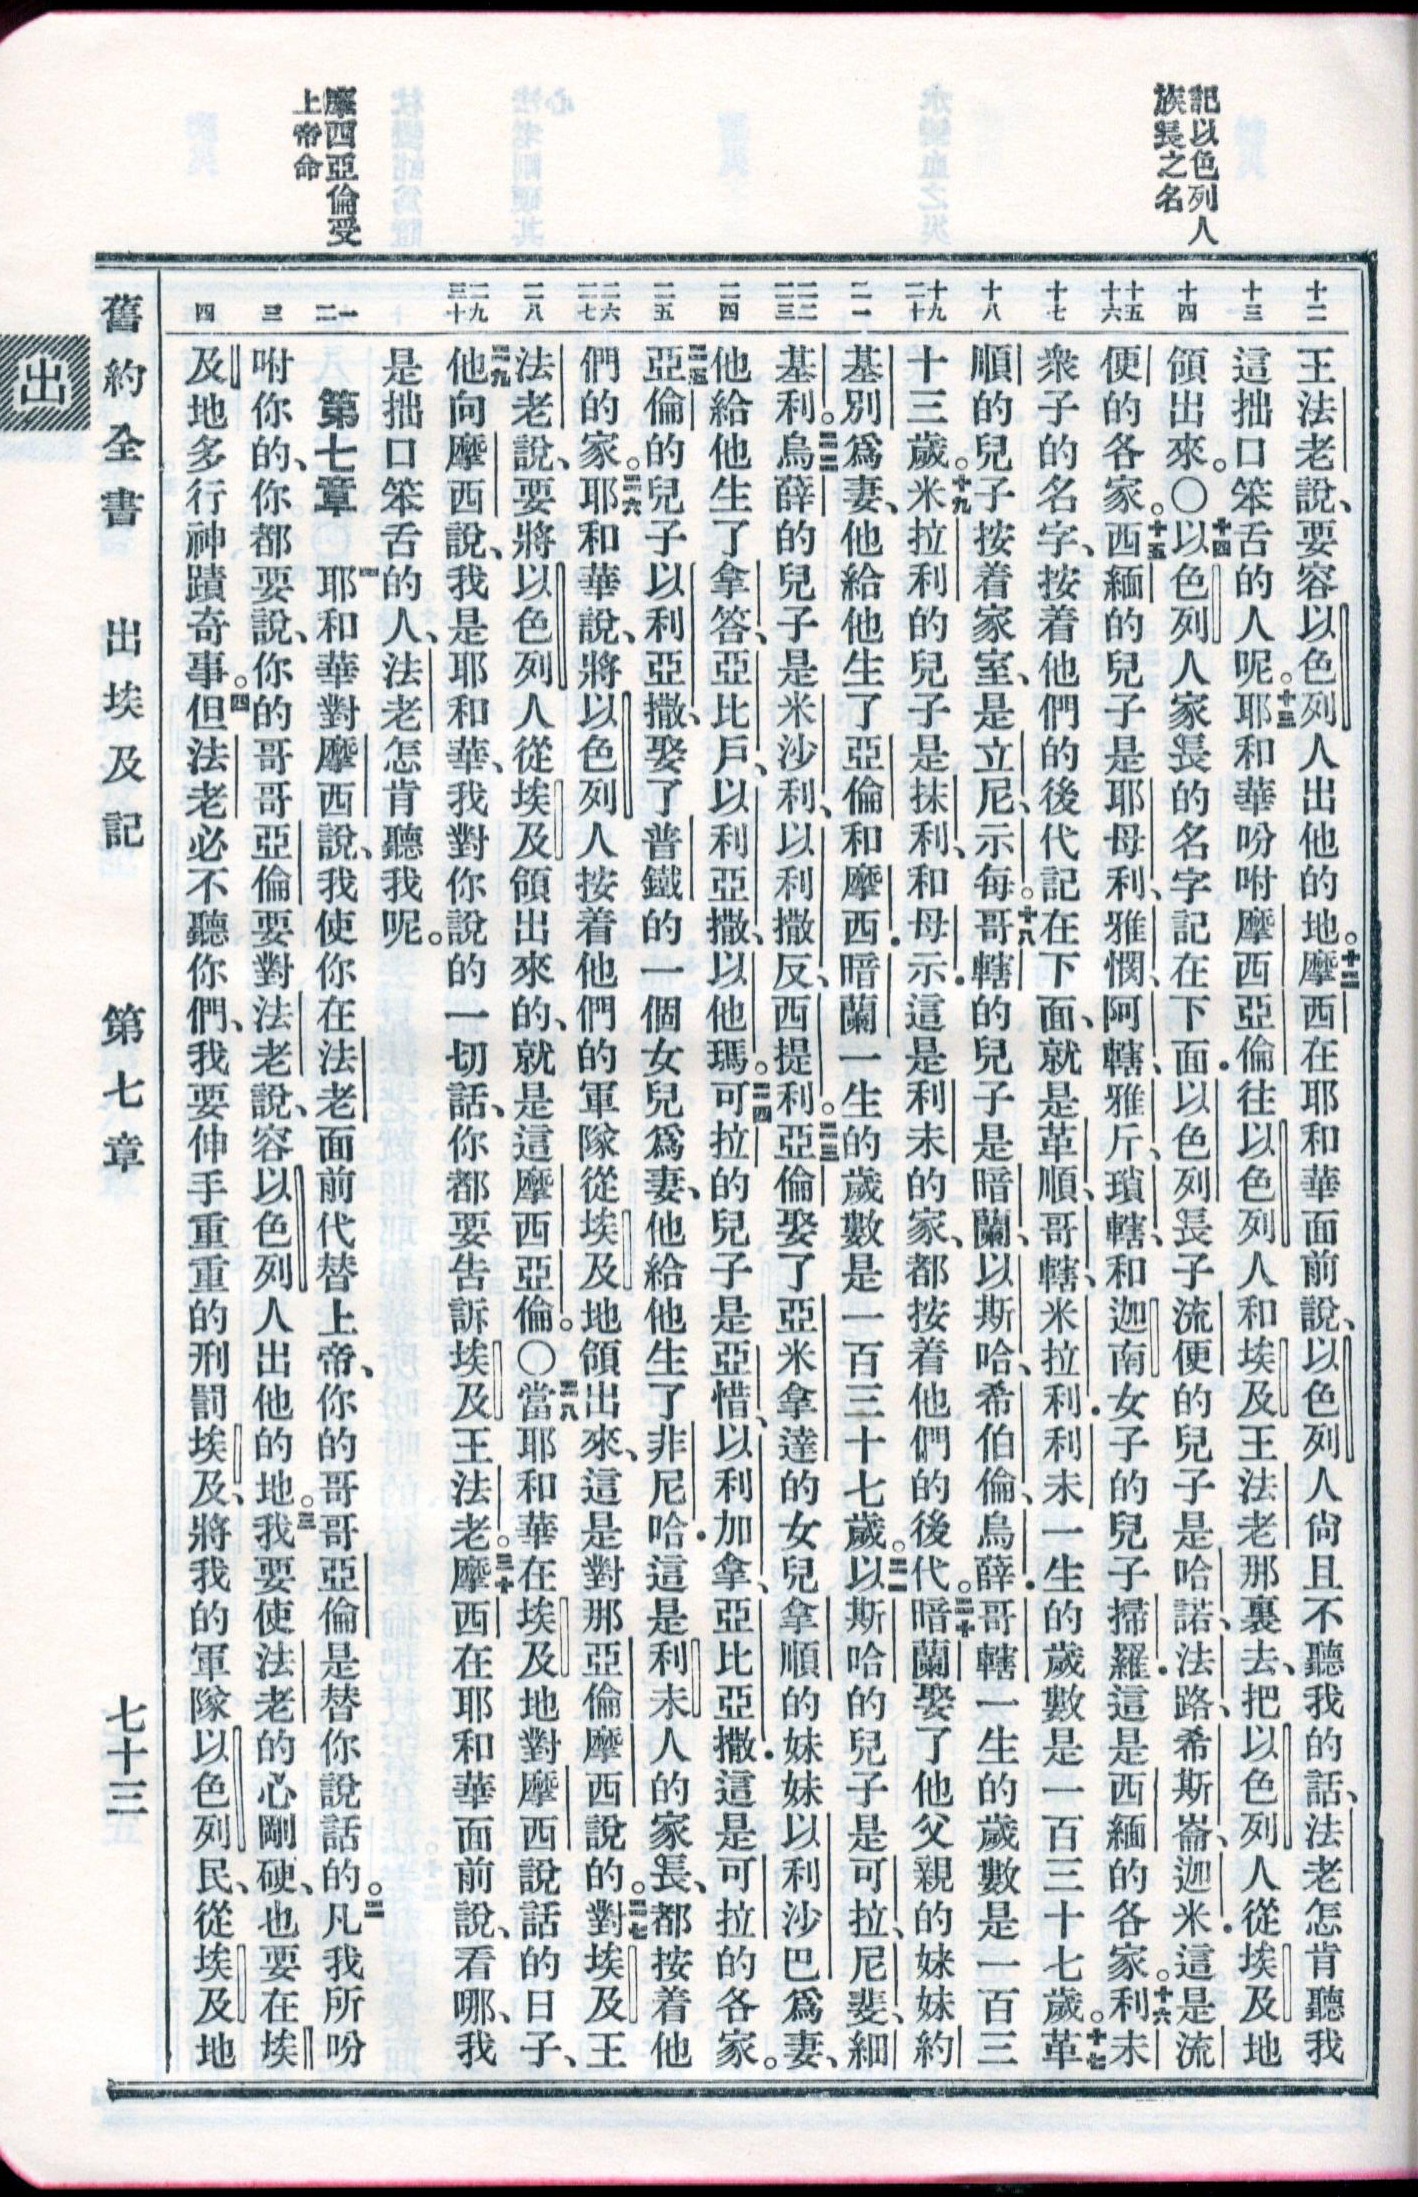 記以色列人
族長之名
摩西亞倫受
上帝命
十二
十三
十四
十五
十六
十七
十八
十九
二十
二一
二二
二三
二四
二五
二六
二七
二八
二九
三十
一
二
三
四
王法老說、要容以色列人出他的地。十二摩西在耶和華面前說、以色列人尙且不聽我的話、法老怎肯聽我
這拙口笨舌的人呢。十三耶和華吩咐摩西亞倫往以色列人和埃及王法老那裏去、把以色列人從埃及地
領出來。〇十四以色列人家長的名字記在下面．以色列長子流便的兒子是哈諾、法路、希斯崙、迦米．這是流
便的各家。十五西緬的兒子是耶母利、雅憫、阿轄、雅斤、瑣轄、和迦南女子的兒子掃羅．這是西緬的各家。十六利未
衆子的名字、按着他們的後代記在下面、就是革順、哥轄、米拉利．利未一生的歲數是一百三十七歲。十七革
順的兒子按着家室、是立尼、示每。十八哥轄的兒子是暗蘭、以斯哈、希伯倫、烏薛．哥轄一生的歲數是一百三
十三歲。十九米拉利的兒子是抹利、和母示．這是利未的家、都按着他們的後代。二十暗蘭娶了他父親的妹妹約
基別爲妻、他給他生了亞倫和摩西．暗蘭一生的歲數是一百三十七歲。二一以斯哈的兒子是可拉、尼斐、細
基利。二二烏薛的兒子是米沙利、以利撒反、西提利。二三亞倫娶了亞米拿達的女兒拿順的妹妹以利沙巴爲妻、
他給他生了拿答、亞比戶、以利亞撒、以他瑪。二四可拉的兒子是亞惜、以利加拿、亞比亞撒．這是可拉的各家。
二五亞倫的兒子以利亞撒、娶了普鐵的一個女兒爲妻、他給他生了非尼哈．這是利未人的家長、都按着他
們的家。二六耶和華說、將以色列人按着他們的軍隊從埃及地領出來、這是對那亞倫摩西說的。二七對埃及王
法老說、要將以色列人從埃及領出來的、就是這摩西亞倫。〇二八當耶和華在埃及地對摩西說話的日子、
二九他向摩西說、我是耶和華、我對你說的一切話、你都要告訴埃及王法老。三十摩西在耶和華面前說、看哪、我
是拙口笨舌的人、法老怎肯聽我呢。
第七章　一耶和華對摩西說、我使你在法老面前代替上帝、你的哥哥亞倫是替你說話的。二凡我所吩
咐你的、你都要說、你的哥哥亞倫要對法老說、容以色列人出他的地。三我要使法老的心剛硬、也要在埃
及地多行神蹟奇事。四但法老必不聽你們、我要伸手重重的刑罰埃及、將我的軍隊以色列民、從埃及地
舊約全書　出埃及記　第七章　七十三
出